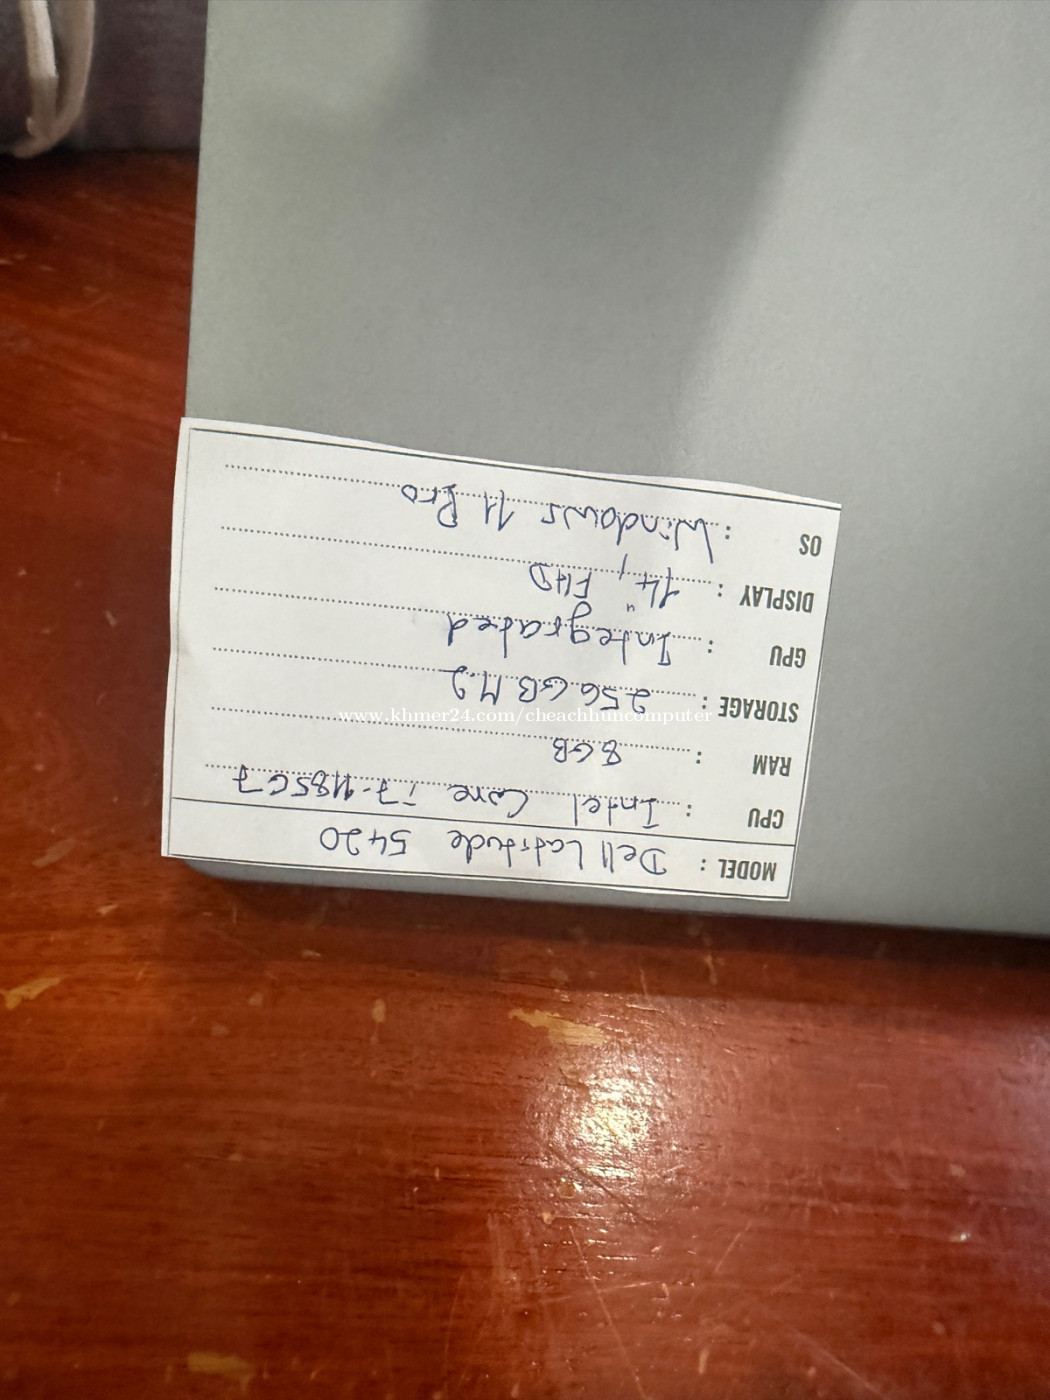 MODEL : Dell Latitude 5420
CPU : Intel Core i7-1185G7
RAM : 8GB
STORAGE : 256GB M.2
GPU : Integrated
DISPLAY : 14", FHD
OS : Windows 11 Pro
www.khmer24.com/cheachhuncomputer